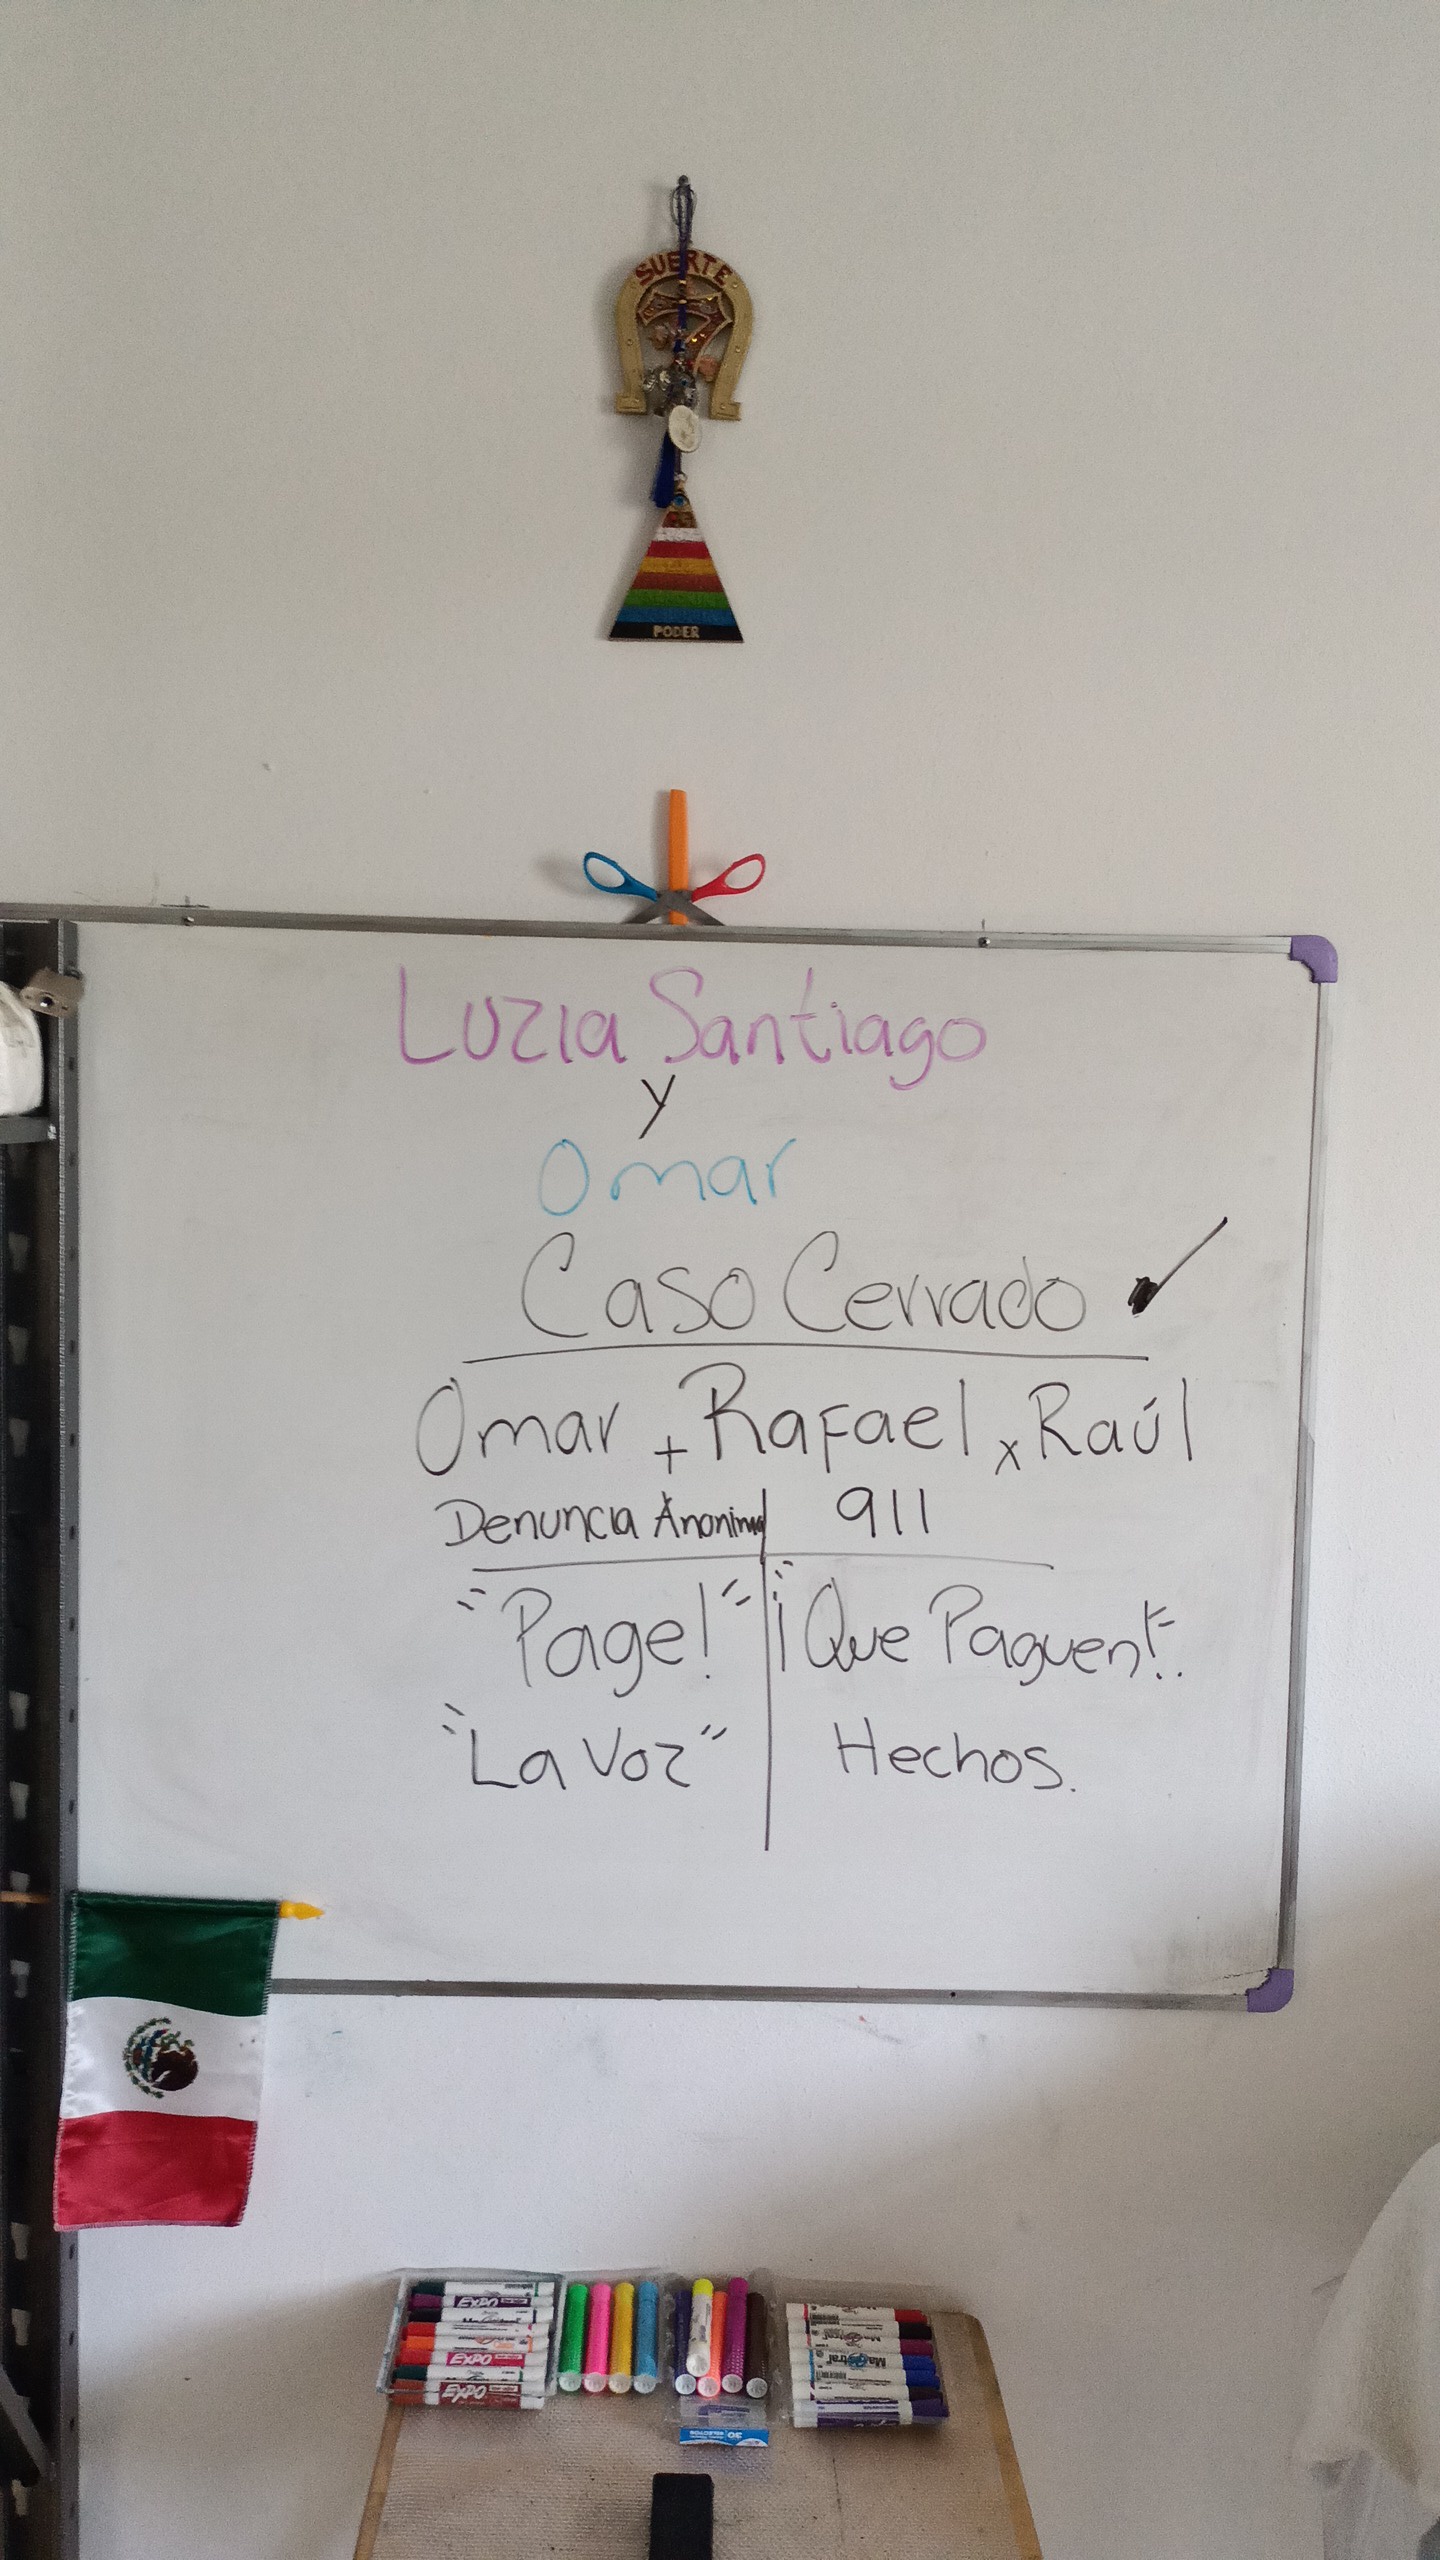 SUERTE
7
PODER
Luzia Santiago
y
Omar
Caso Cerrado ✓
Omar + Rafael x Raúl
Denuncia Anonima 911
"Page!" "¡Que Paguen!".
"La Voz" Hechos.
EXPO
EXPO
EXPO
Magistral